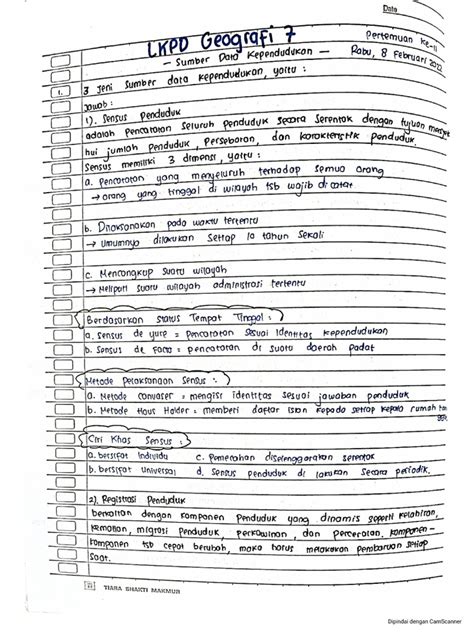 Date
LKPD Geografi 7
Pertemuan ke-11
- Sumber Data Kependudukan -
Rabu, 8 Februari 2022
1. 3 jeni sumber data kependudukan, yaitu :
Jawab :
1). Sensus Penduduk
adalah Pencatatan seluruh penduduk secara serentak dengan tujuan menget
hui jumlah penduduk, Persebaran, dan karakteristik penduduk.
Sensus memiliki 3 dimensi, yaitu :
a. Pencatatan yang menyeluruh terhadap semua orang
→ orang yang tinggal di wilayah tsb wajib di catat
b. Dilaksanakan pada waktu tertentu
→ Umumnya dilakukan setiap 10 tahun sekali
c. Mencangkup suatu wilayah
→ Meliputi suatu wilayah administrasi tertentu
Berdasarkan Status Tempat Tinggal :
a. Sensus de yure = Pencatatan sesuai identitas kependudukan
b. Sensus de facto = pencatatan di suatu daerah padat
Metode Pelaksanaan Sensus :
a. Metode canvaser = mengisi identitas sesuai jawaban penduduk
b. Metode Haus Holder = memberi daftar isian kepada setiap kepala rumah tan
gga
Ciri Khas Sensus :
a. bersifat individu c. Pemecahan diselenggarakan serentak
b. bersifat universal d. Sensus penduduk di lakukan secara periodik.
2). Registrasi Penduduk
berkaitan dengan komponen Penduduk yang dinamis seperti kelahiran,
kematian, migrasi penduduk, perkawinan, dan perceraian. komponen-
komponen tsb cepat berubah, maka harus melakukan pembaruan setiap
saat.
TIARA BHAKTI MAKMUR
Dipindai dengan CamScanner